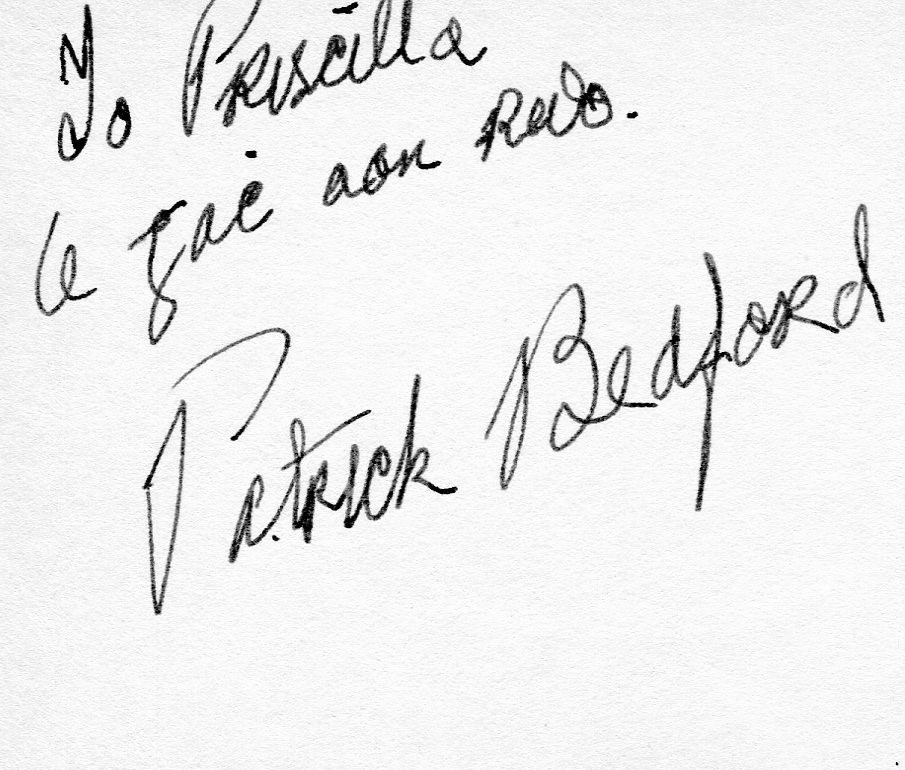 To Priscilla
le gaċ aon
Patrick Bedford